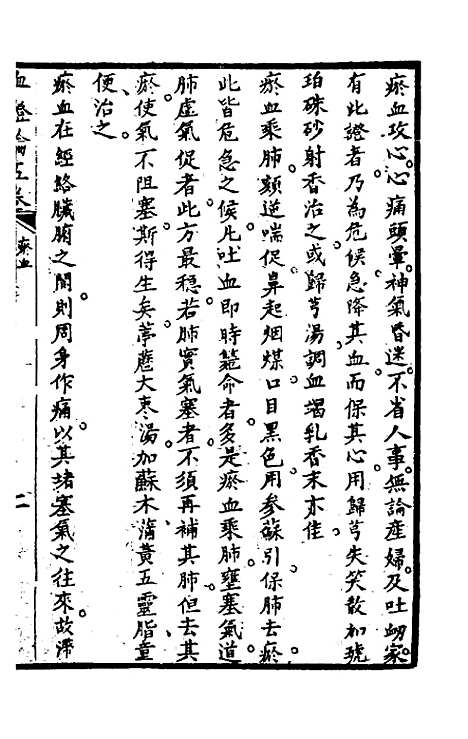 瘀血攻心。心痛頭暈。神氣昏迷。不省人事。無論產婦。及吐衂家。
有此證者。乃為危候。急降其血。而保其心。用歸芎失笑散。加琥
珀硃砂射香治之。或歸芎湯調血竭乳香末亦佳
瘀血乘肺。頦逆喘促。鼻起烟煤。口目黑色。用参蘇引。保肺去瘀。
此皆危急之候。凡吐血即時斃命者。多是瘀血乘肺。壅塞氣道。
肺虛氣促者。此方最穩。若肺實氣塞者。不須再補其肺。但去其
瘀。使氣不阻塞。斯得生矣。葶藶大枣湯。加蘇木蒲黄五靈脂童
便治之。
瘀血在經絡臟腑之間。則周身作痛。以其堵塞氣之往來。故滯
血證論五卷 瘀血 二